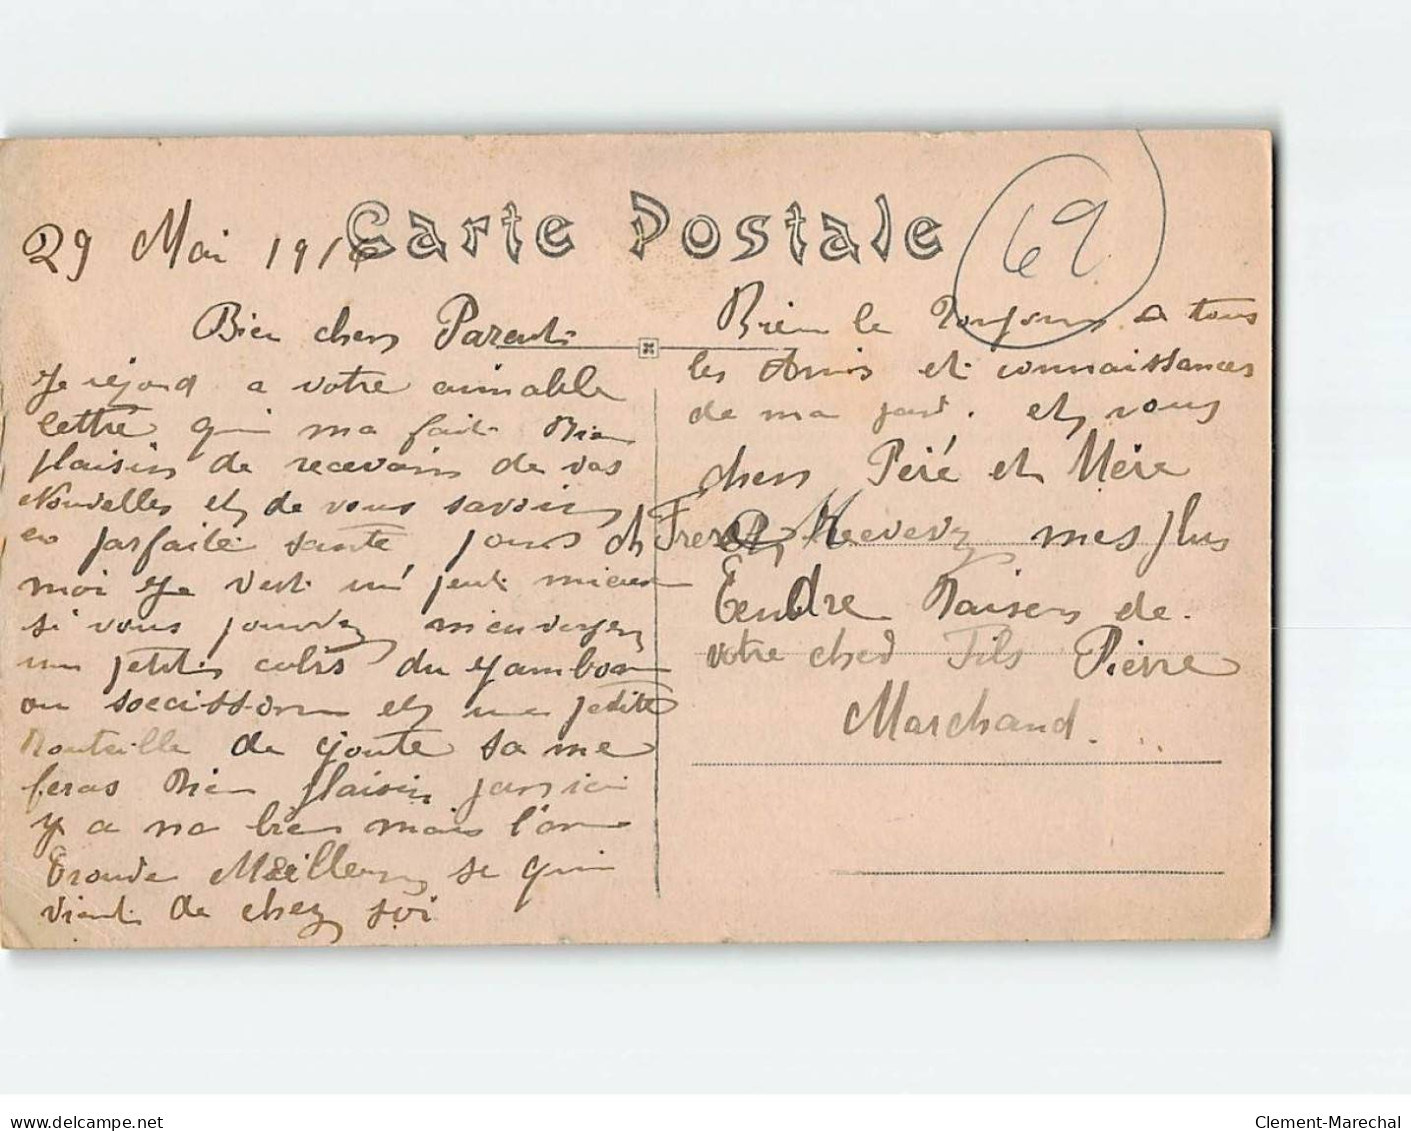 Carte Postale
69
29 Mai 191
Bien chers Parents
Je répond a votre aimable
lettre qui ma fait Bien
plaisir de recevoir de vos
Nouvelles et de vous savoir
en parfaite santé pour
moi Je vest un peut mieux
si vous pouvez m'envoyez
un petit colis du Jambon
ou soecisson et une petite
Bouteille de goute sa me
feras Bien plaisir parsici
y a na bien mais l'on
trouve Meilleur se qui
vient de chez soi
Bien le Bonjour a tous
les Amis et connaissances
de ma part. et vous
chers Père et Mère
ch Frere Recevez mes plus
Tendre Baisers de
votre cher Fils Pierre
Marchand.
delcampe.net
Clement-Marechal